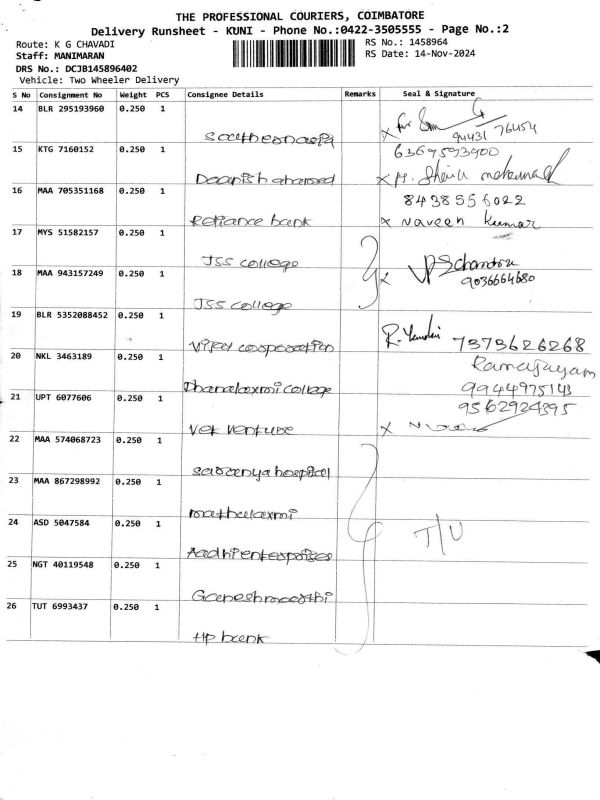 THE PROFESSIONAL COURIERS, COIMBATORE
Delivery Runsheet - KUNI - Phone No.:0422-3505555 - Page No.:2
Route: K G CHAVADI
RS No.: 1458964
Staff: MANIMARAN
RS Date: 14-Nov-2024
DRS No.: DCJB145896402
Vehicle: Two Wheeler Delivery
S No Consignment No Weight PCS Consignee Details Remarks Seal & Signature
14 BLR 295193960 0.250 1
94431 76454
15 KTG 7160152 0.250 1 6369593900
16 MAA 705351168 0.250 1 8438556022
Reliance bank x Naveen Kumar
17 MYS 51582157 0.250 1
JSS college
9036664680
18 MAA 943157249 0.250 1
JSS college
19 BLR 5352088452 0.250 1
7373626268
20 NKL 3463189 0.250 1 Ramajayam
Dhanalaxmi college 9944975143
21 UPT 6077606 0.250 1 9562924395
Vet venture
22 MAA 574068723 0.250 1
saranya hospital
23 MAA 867298992 0.250 1
mathulaxmi
24 ASD 5047584 0.250 1 T/U
Aadhi enterprises
25 NGT 40119548 0.250 1
Ganeshmoorthi
26 TUT 6993437 0.250 1
HP bank